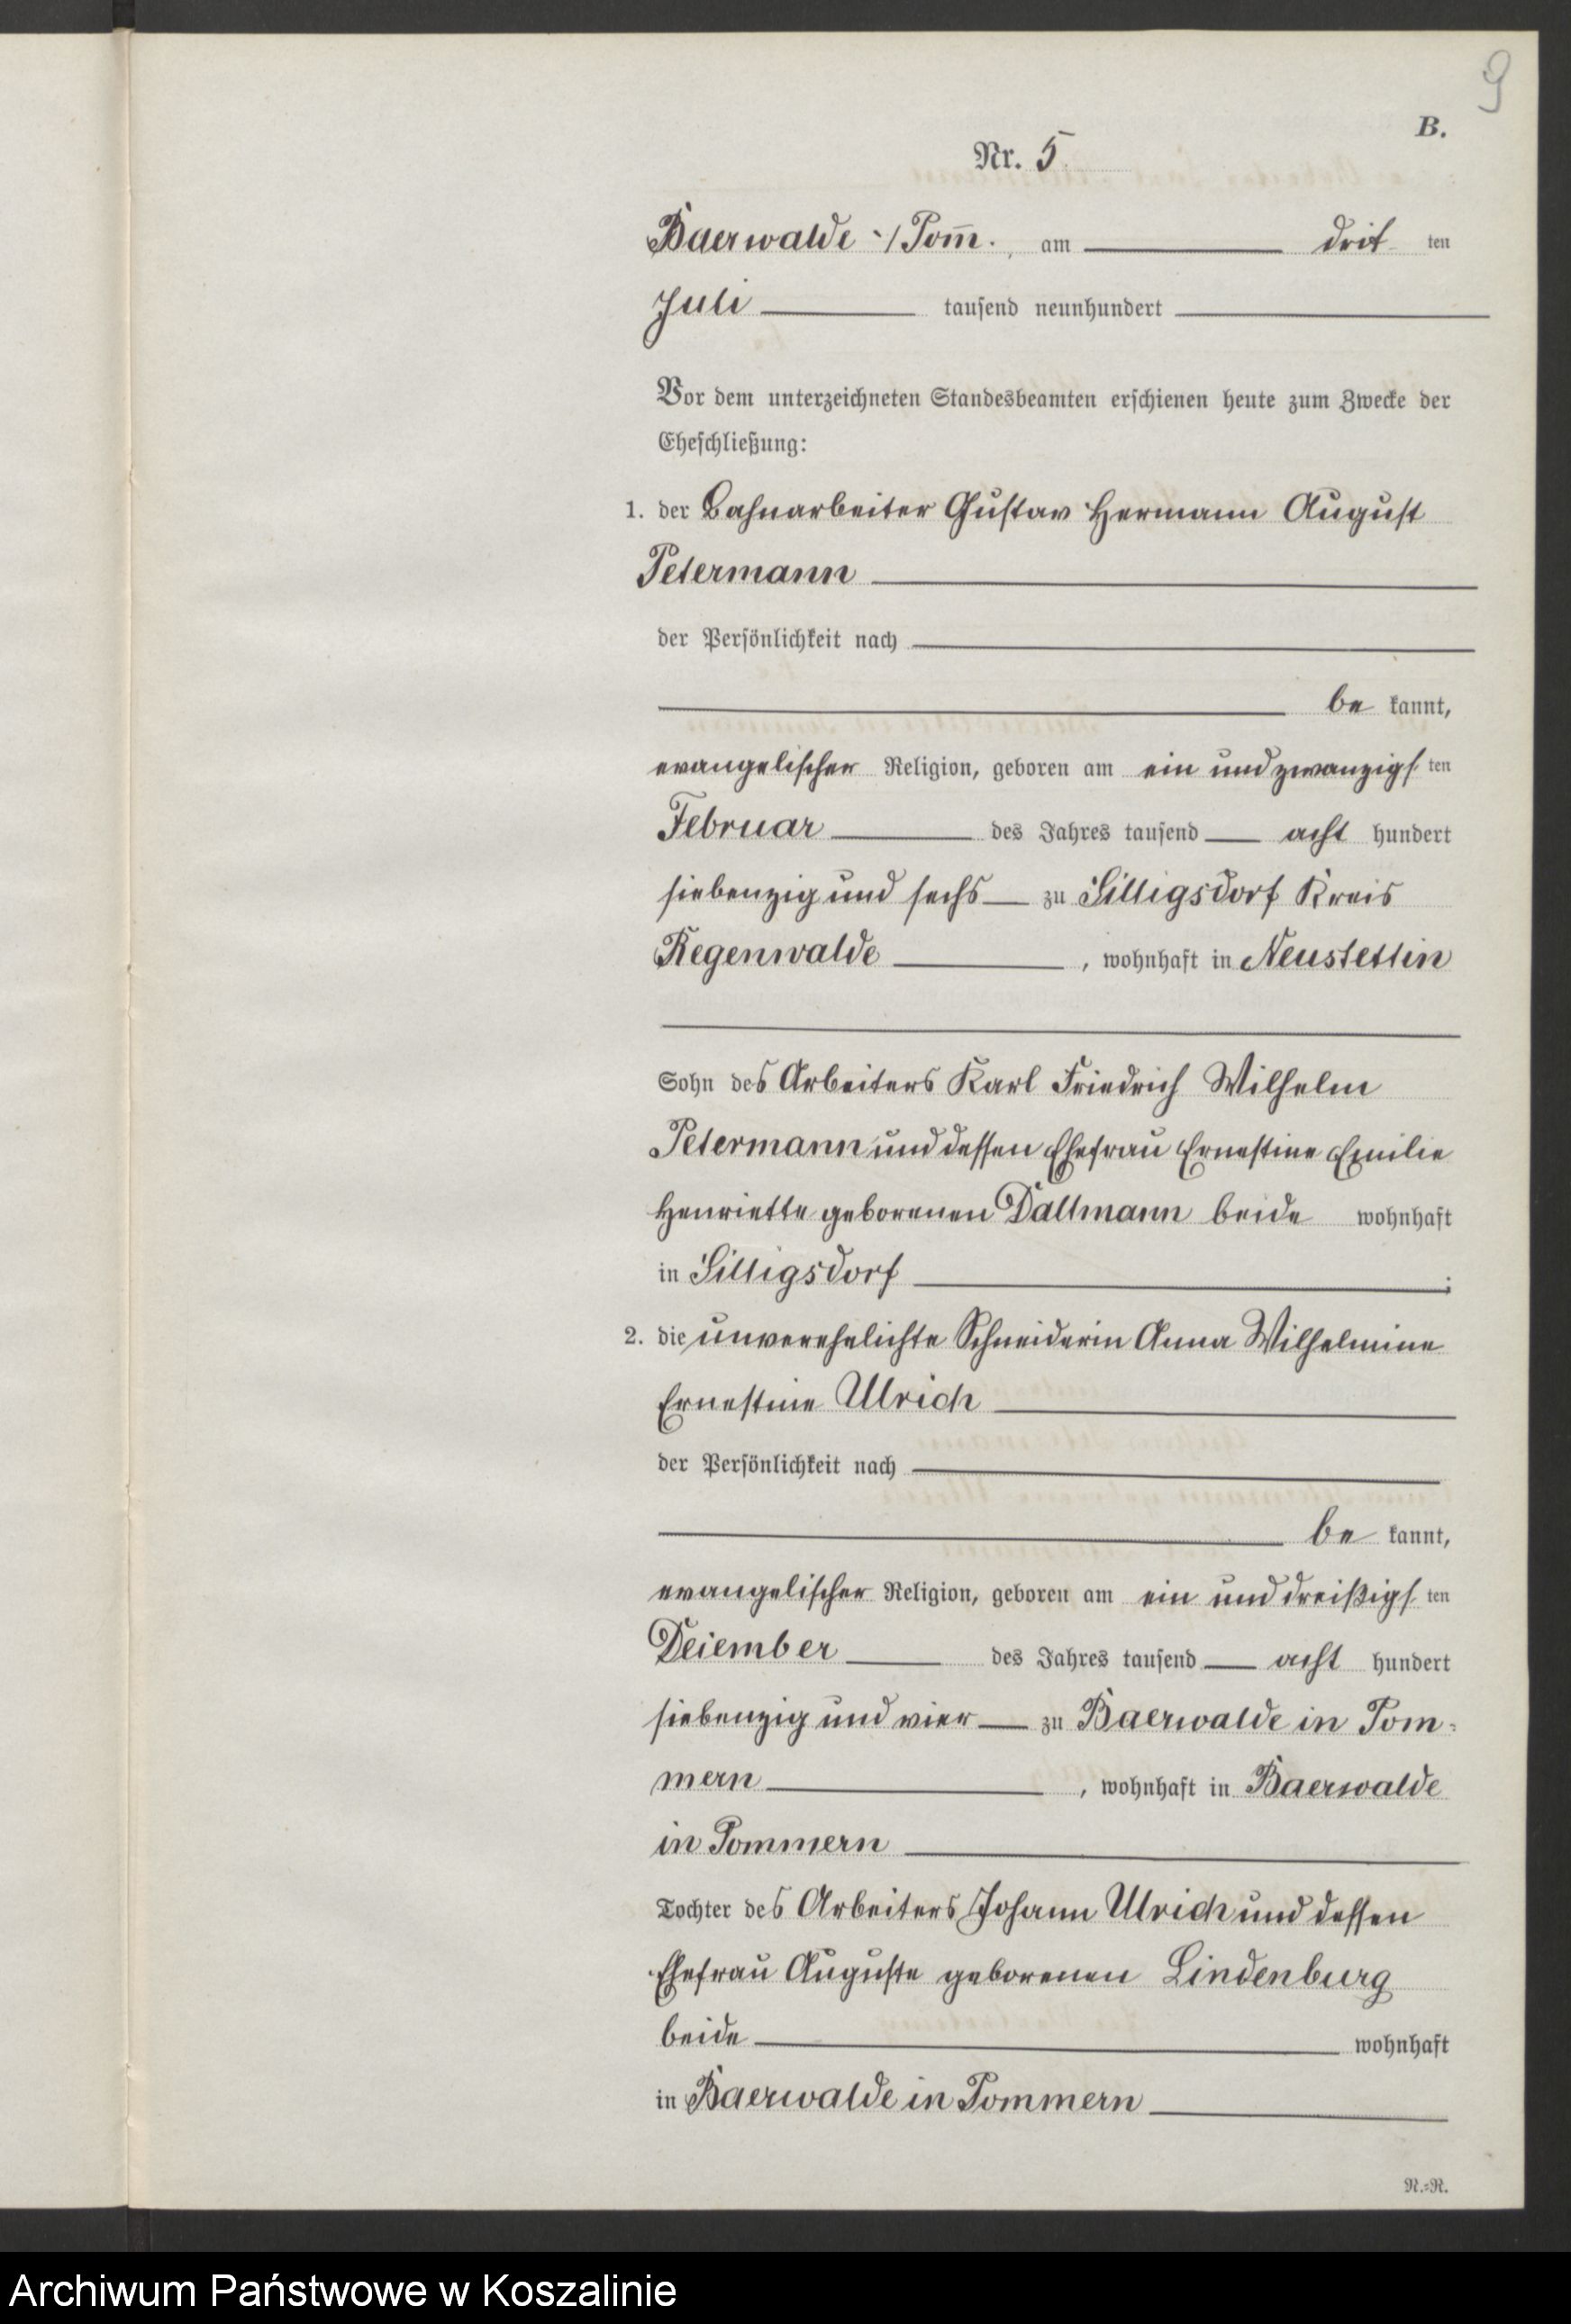 9
B.
Nr. 5
Baerwalde i/Pom̅., am drit ten
Juli tausend neunhundert
Vor dem unterzeichneten Standesbeamten erschienen heute zum Zwecke der
Eheschließung:
1. der Bahnarbeiter Gustav Hermann August
Petermann
der Persönlichkeit nach
be kannt,
evangelischer Religion, geboren am ein und zwanzigs ten
Februar des Jahres tausend acht hundert
siebenzig und sechs zu Silligsdorf Kreis
Regenwalde, wohnhaft in Neustettin
Sohn des Arbeiters Karl Friedrich Wilhelm
Petermann und dessen Ehefrau Ernestine Emilie
Henriette geborenen Dallmann beide wohnhaft
in Silligsdorf;
2. die unverehelichte Schneiderin Anna Wilhelmine
Ernestine Ulrich
der Persönlichkeit nach
be kannt,
evangelischer Religion, geboren am ein und dreißigs ten
Dezember des Jahres tausend acht hundert
siebenzig und vier zu Baerwalde in Pom-
mern, wohnhaft in Baerwalde
in Pommern
Tochter des Arbeiters Johann Ulrich und dessen
Ehefrau Auguste geborenen Lindenburg
beide wohnhaft
in Baerwalde in Pommern
R.-R.
Archiwum Państwowe w Koszalinie